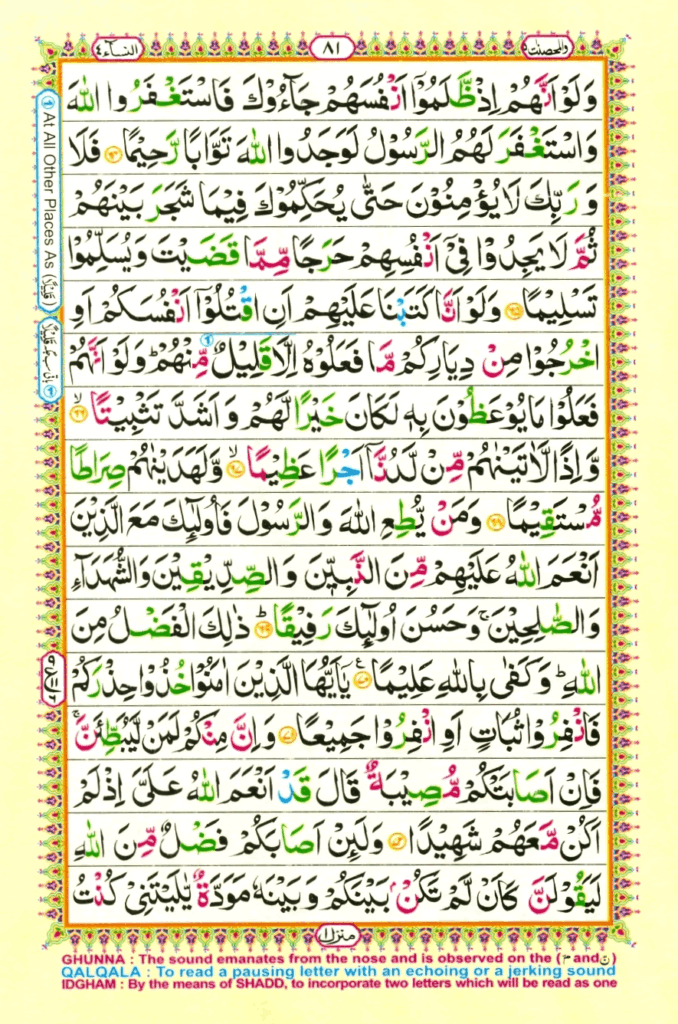 والمحصنت ٥
٨١
النسآء ٤
وَلَوْ اَنَّهُمْ اِذْ ظَّلَمُوْۤا اَنْفُسَهُمْ جَآءُوْكَ فَاسْتَغْفَرُوا اللّٰهَ
وَاسْتَغْفَرَ لَهُمُ الرَّسُوْلُ لَوَجَدُوا اللّٰهَ تَوَّابًا رَّحِيْمًا ﴿۶۴﴾ فَلَا
وَ رَبِّكَ لَا يُؤْمِنُوْنَ حَتّٰى يُحَكِّمُوْكَ فِيْمَا شَجَرَ بَيْنَهُمْ
ثُمَّ لَا يَجِدُوْا فِيْۤ اَنْفُسِهِمْ حَرَجًا مِّمَّا قَضَيْتَ وَيُسَلِّمُوْا
تَسْلِيْمًا ﴿۶۵﴾ وَلَوْ اَنَّا كَتَبْنَا عَلَيْهِمْ اَنِ اقْتُلُوْۤا اَنْفُسَكُمْ اَوِ
اخْرُجُوْا مِنْ دِيَارِكُمْ مَّا فَعَلُوْهُ اِلَّا قَلِيْلٌ مِّنْهُمْ ؕ وَلَوْ اَنَّهُمْ
فَعَلُوْا مَا يُوْعَظُوْنَ بِهٖ لَكَانَ خَيْرًا لَّهُمْ وَ اَشَدَّ تَثْبِيْتًا ۙ﴿۶۶﴾
وَّاِذًا لَّاٰتَيْنٰهُمْ مِّنْ لَّدُنَّاۤ اَجْرًا عَظِيْمًا ۙ﴿۶۷﴾ وَّلَهَدَيْنٰهُمْ صِرَاطًا
مُّسْتَقِيْمًا ﴿۶۸﴾ وَمَنْ يُّطِعِ اللّٰهَ وَالرَّسُوْلَ فَاُولٰٓئِكَ مَعَ الَّذِيْنَ
اَنْعَمَ اللّٰهُ عَلَيْهِمْ مِّنَ النَّبِيّٖنَ وَالصِّدِّيْقِيْنَ وَالشُّهَدَآءِ
وَالصّٰلِحِيْنَ ۚ وَحَسُنَ اُولٰٓئِكَ رَفِيْقًا ﴿ؕ۶۹﴾ ذٰلِكَ الْفَضْلُ مِنَ
اللّٰهِ ؕ وَكَفٰى بِاللّٰهِ عَلِيْمًا ﴿۷۰﴾ يٰۤاَيُّهَا الَّذِيْنَ اٰمَنُوْا خُذُوْا حِذْرَكُمْ
فَانْفِرُوْا ثُبَاتٍ اَوِ انْفِرُوْا جَمِيْعًا ﴿۷۱﴾ وَاِنَّ مِنْكُمْ لَمَنْ لَّيُبَطِّئَنَّ ۚ
فَاِنْ اَصَابَتْكُمْ مُّصِيْبَةٌ قَالَ قَدْ اَنْعَمَ اللّٰهُ عَلَيَّ اِذْ لَمْ
اَكُنْ مَّعَهُمْ شَهِيْدًا ﴿۷۲﴾ وَلَئِنْ اَصَابَكُمْ فَضْلٌ مِّنَ اللّٰهِ
لَيَقُوْلَنَّ كَاَنْ لَّمْ تَكُنْۢ بَيْنَكُمْ وَبَيْنَهٗ مَوَدَّةٌ يّٰلَيْتَنِيْ كُنْتُ
① At All Other Places As (قَلِيْلًا)
منزل ١
GHUNNA : The sound emanates from the nose and is observed on the (مّ and نّ)
QALQALA : To read a pausing letter with an echoing or a jerking sound
IDGHAM : By the means of SHADD, to incorporate two letters which will be read as one